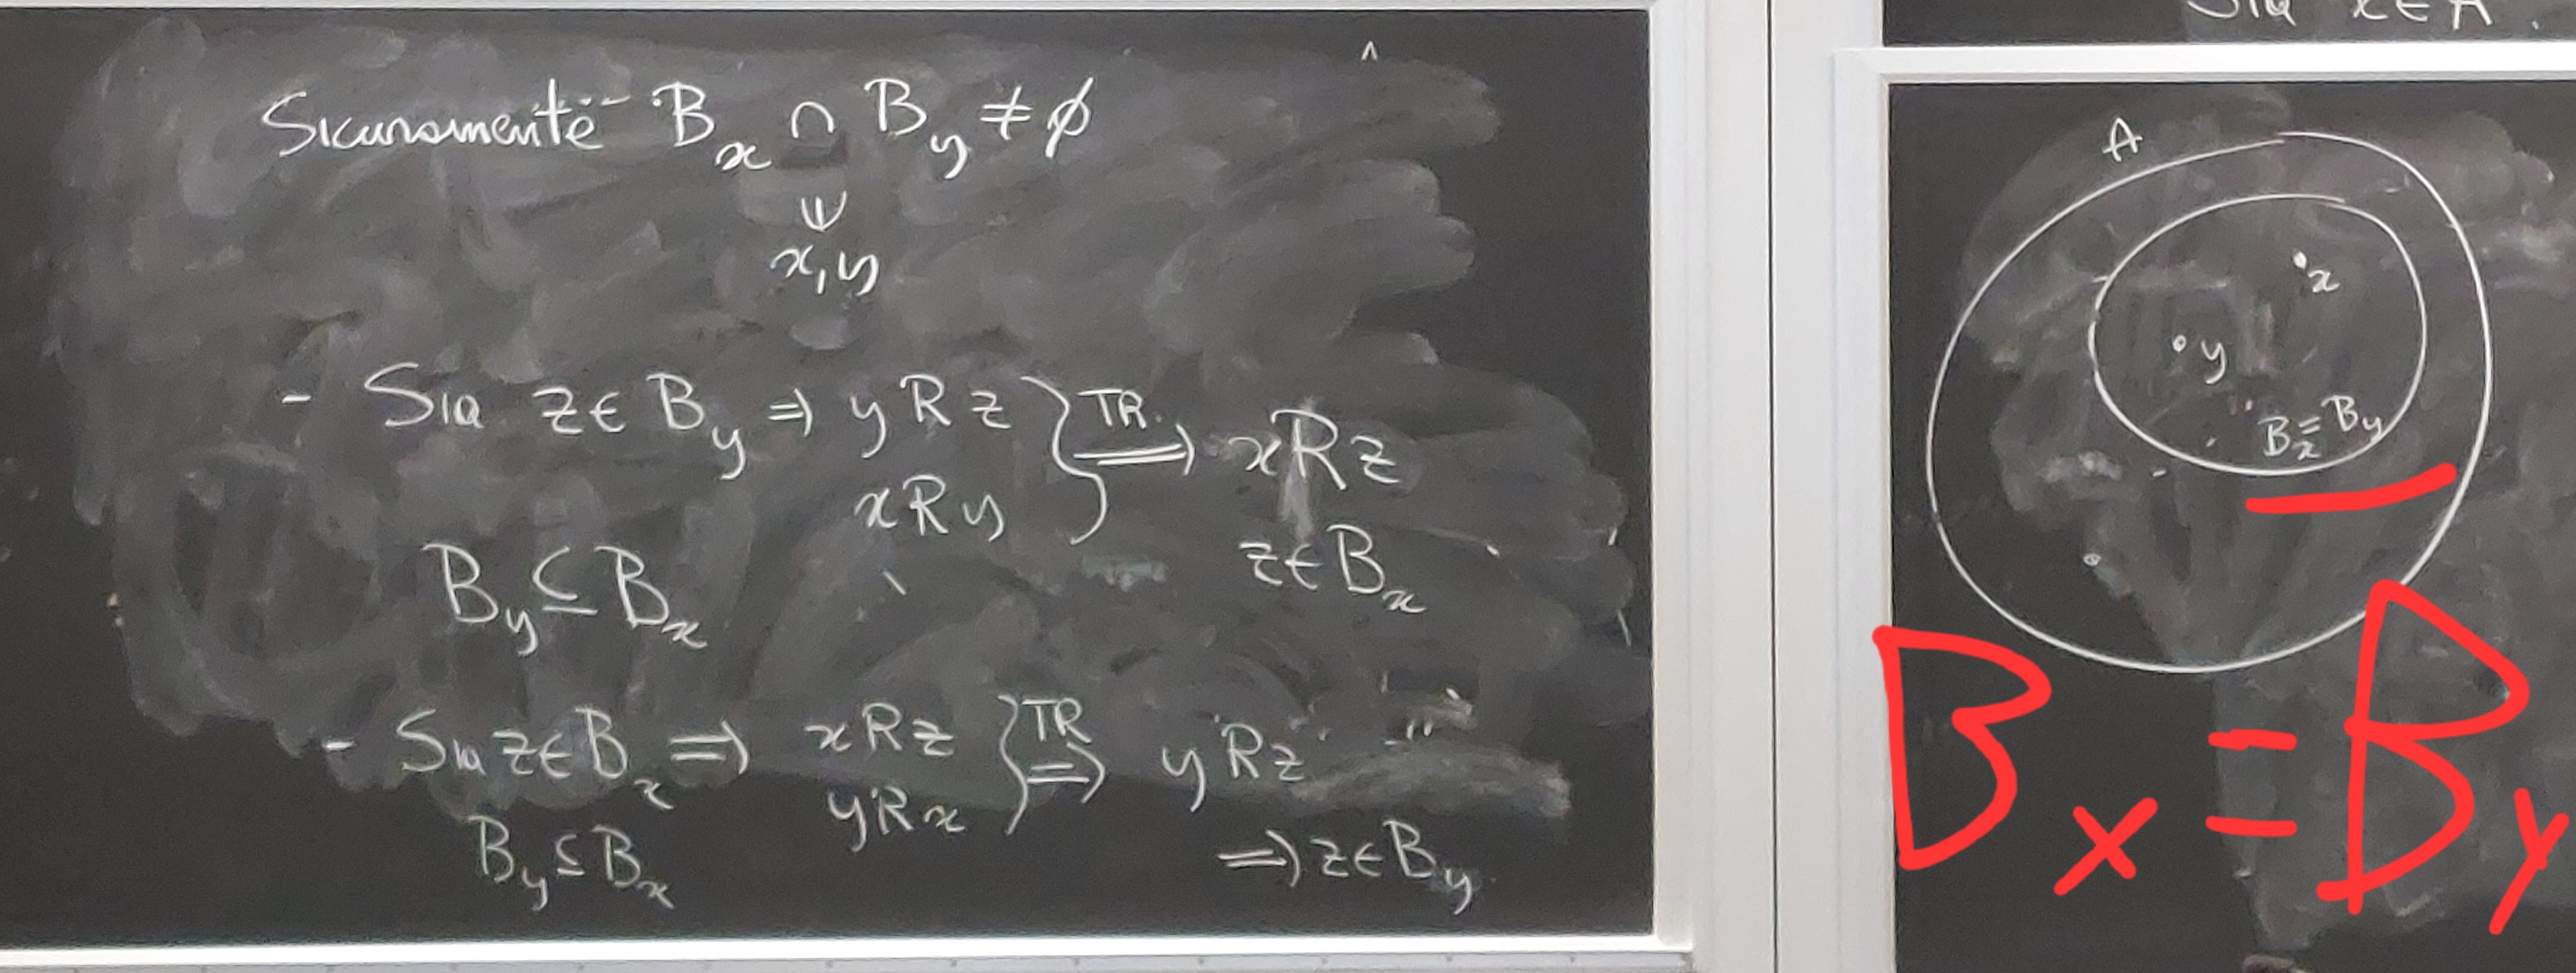 Sicuramente B_x ∩ B_y ≠ ∅
⋓
x, y
- Sia z ∈ B_y ⇒ y R z } TR. ⇒ x R z
x R y
z ∈ B_x
B_y ⊆ B_x
- Sia z ∈ B_x ⇒ x R z } TR ⇒ y R z
y R x
B_y ⊆ B_x
⇒ z ∈ B_y
Sia x ∈ A.
A
x
y
B_x = B_y
B_x = B_y